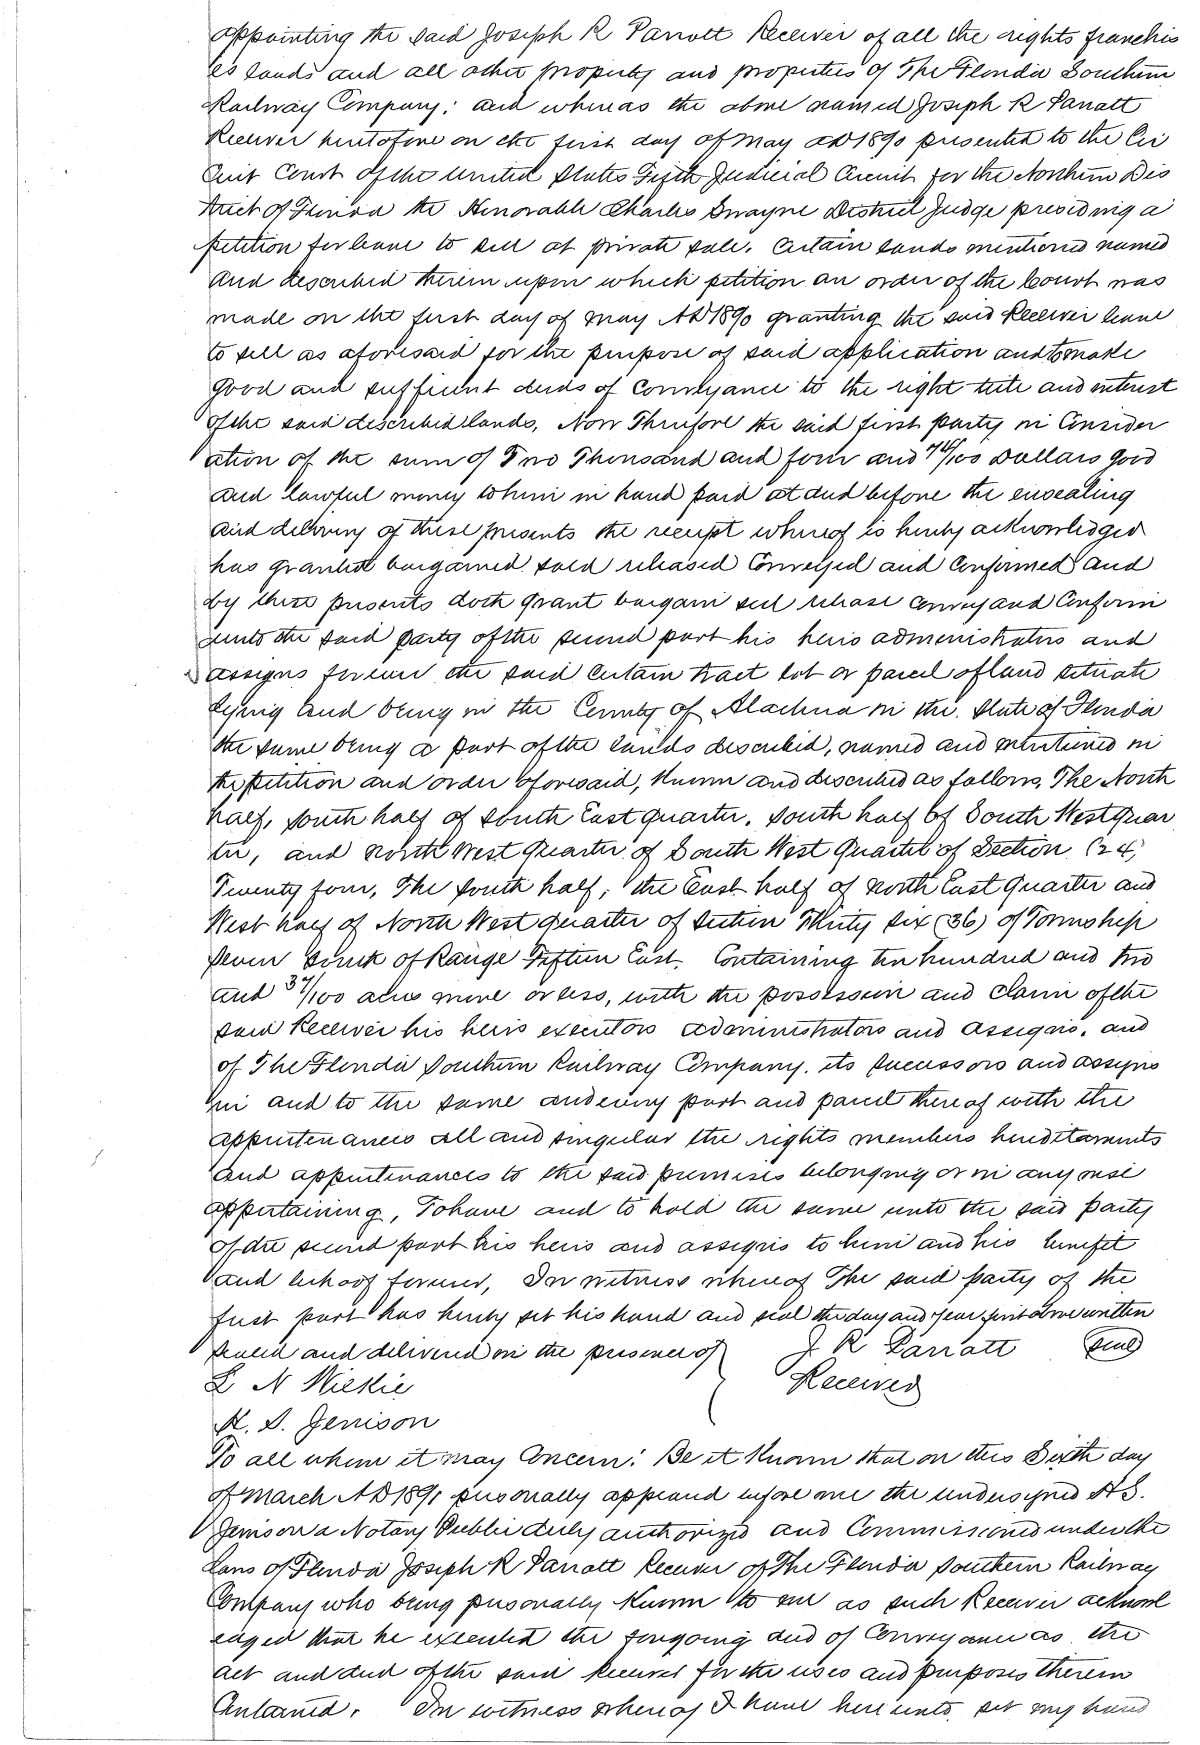 appointing the said Joseph R Parrott Receiver of all the rights franchis
es lands and all other property and properties of The Florida Southern
Railway Company; and whereas the above named Joseph R Parrott
Receiver heretofore on the first day of May AD 1890 presented to the Cir
cuit Court of the United States Fifth Judicial Circuit for the Northern Dis
trict of Florida the Honorable Charles Swayne District Judge presiding a
petition for leave to sell at private sale. Certain lands mentioned named
and described therein upon which petition an order of the Court was
made on the first day of May AD 1890 granting the said Receiver leave
to sell as aforesaid for the purpose of said application and to make
good and sufficient deeds of conveyance to the right title and interest
of the said described lands. Now Therefore the said first party in Consider
ation of the sum of Two Thousand and four and /100 Dollars good
and lawful money to him in hand paid at and before the ensealing
and delivery of these presents the receipt whereof is hereby acknowledged
has granted bargained sold released Conveyed and Confirmed and
by these presents doth grant bargain sell release convey and Confirm
unto the said party of the second part his heirs administrators and
assigns forever the said certain tract lot or parcel of land situate
lying and being in the County of Alachua in the State of Florida
the same being a part of the lands described, named and mentioned in
the petition and order aforesaid, Known and described as follows, The North
half, south half of South East quarter, South half of South West Quar
ter, and North West Quarter of South West Quarter of Section (24)
Twenty four, The South half, the East half of North East Quarter and
West half of North West quarter of Section Thirty six (36) of Township
Seven South of Range Fifteen East. Containing ten hundred and two
and 37/100 acres more or less, with the possession and claim of the
said Receiver his heirs executors administrators and assigns, and
of The Florida Southern Railway Company. its successors and assigns
in and to the same and every part and parcel thereof with the
appurtenances all and singular the rights members hereditaments
and appurtenances to the said premises belonging or in any wise
appertaining, To have and to hold the same unto the said party
of the second part his heirs and assigns to him and his benefit
and behoof forever, In witness whereof The said party of the
first part has hereby set his hand and seal the day and year first above written
Sealed and delivered in the presence of J R Parrott (seal)
L N Wilkie Receiver
H. S. Jenison
To all whom it may Concern: Be it Known that on this Sixth day
of March AD 1891 personally appeared before me the undersigned H S.
Jenison a Notary Public duly authorized and Commissioned under the
Laws of Florida Joseph R Parrott Receiver of The Florida Southern Railway
Company who being personally Known to me as such Receiver acknowl
edged that he executed the foregoing deed of Conveyance as the
act and deed of the said Receiver for the uses and purposes therein
Contained. In witness whereof I have hereunto set my hand